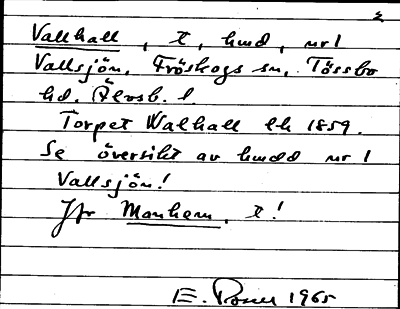 Vallhall, t, hmd, nr 1
Vallsjön, Fröskogs sn, Tössbo
hd. Älvsb. l.
Torpet Walhall lk 1859.
Se översikt av hmdd nr 1
Vallsjön!
Jfr Manhem, t!
E. 1965